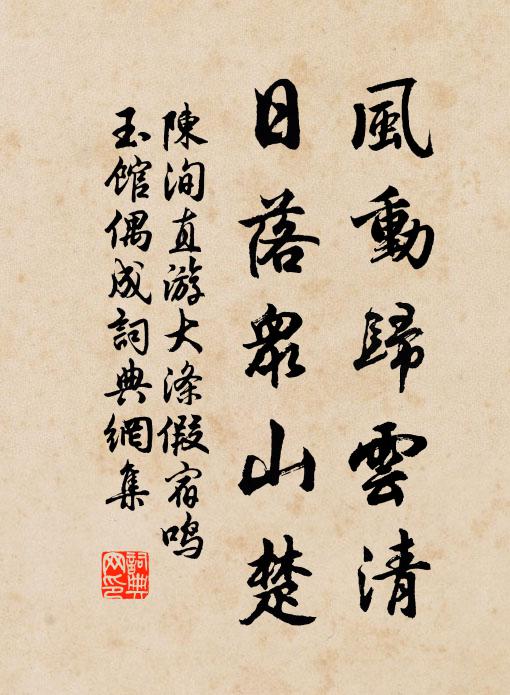 風動歸雲清
日落衆山楚
陳洵直游大滌假宿鳴
玉馆偶成詞典網集
詞典网印